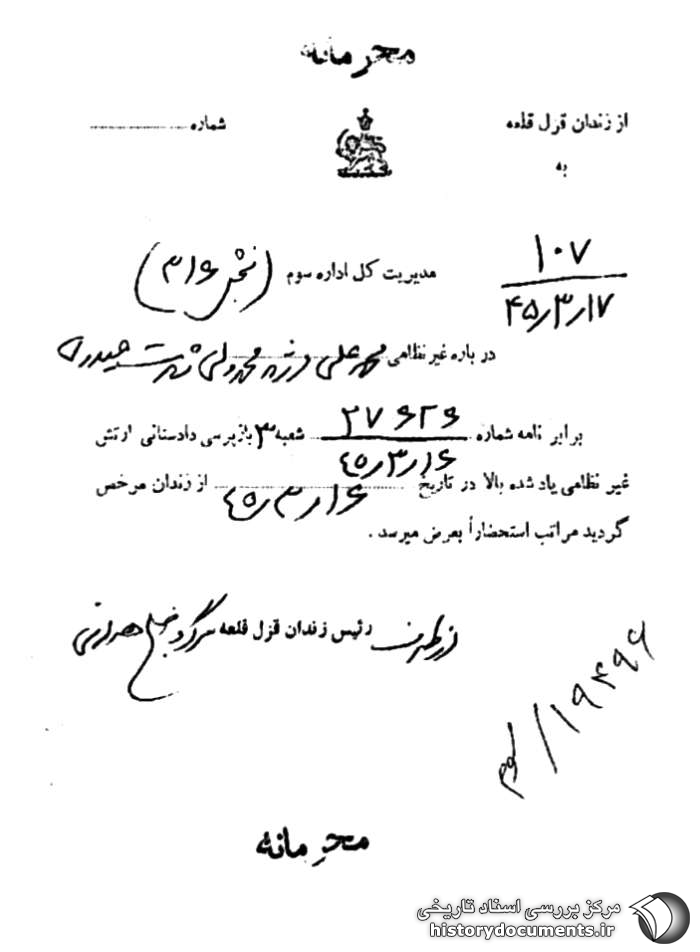 محرمانه
از زندان قزل قلعه
شماره
به
۱۰۷
۴۵/۳/۱۷
مدیریت کل اداره سوم (بخش ۳۱۶)
در باره غیر نظامی محمدعلی فرزند محمدولی شهرت حیدری
برابر نامه شماره ۲۷۶۲۶ شعبه ۳ بازپرسی دادستانی ارتش
۴۵/۳/۱۶
غیر نظامی یاد شده بالا در تاریخ ۴۵/۳/۱۶ از زندان مرخص
گردید مراتب استحضاراً بعرض میرسد .
از طرف رئیس زندان قزل قلعه سرگرد
۱۹۴۹۶/
محرمانه
مرکز بررسی اسناد تاریخی
historydocuments.ir